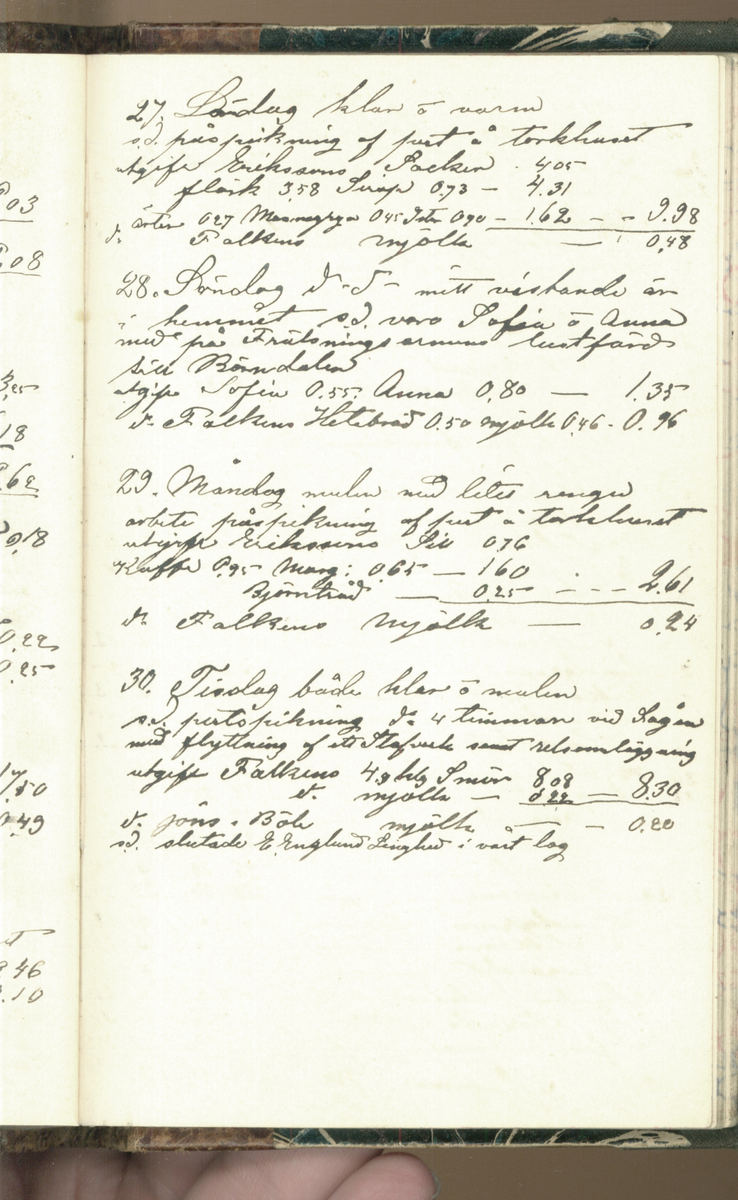 03
08
27. Lördag klar o varm
s.d. påspikning af pert å torkhuset
utgift Erikssons Socker 4,05
fläsk 3,58 Sirap 0.73 — 4.31
ärter 027 Mannagryn 045 Ister 090 — 1.62 — - 9.98
d. Falkens mjölk — 0,48
28. Söndag d - d - mitt vistande är
i hemmet s.d. voro Sofia o Anna
med på Frälsningsarmens lustfärd
till Börndalen
utgift Sofia 0.55. Anna 0,80 — 1.35
d. Falkens Hvetebröd 0.50 mjölk 0,46 - 0.96
29. Måndag mulen med litet rengn
arbete påspikning af pert å torkhuset
utgift Erikssons Sill 076
Kaffe 0.95 Marg: 065 — 160
Björntråd — 0.25 - - - 2.61
d. Falkens mjölk — 0.24
30. Tisdag både klar o mulen
s.d. pertspikning d. 4 timmar vid Sågen
med flyttning af ett Stafverk samt relsomläggning
utgift Falkens 4,9 hg Smör 8.08
d. mjölk — 0.22 — 8.30
d. Jöns - Böle mjölk — - 0.20
s.d. slutade E. Englund Linghed i vårt lag
18
62
0,18
0.22
0.25
17,50
49
46
.10